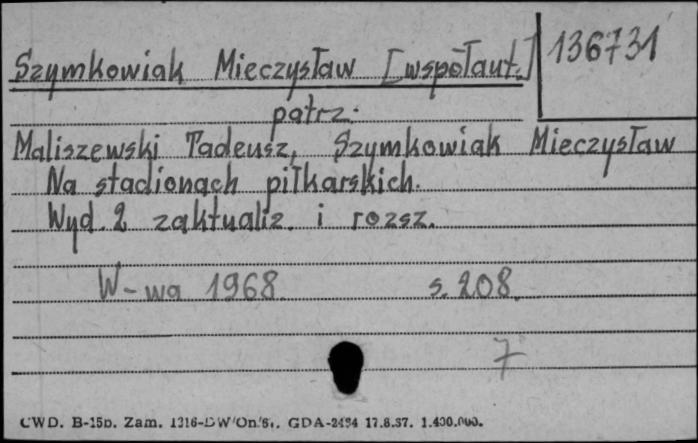 Szymkowiak Mieczysław [współaut.] 136731
patrz.
Maliszewski Tadeusz, Szymkowiak Mieczysław
Na stadionach piłkarskich.
Wyd. 2 zaktualiz. i rozsz.
W-wa 1968. s. 208.
7
CWD. B-15b. Zam. GDA-2494 17.8.57. 1.400.000.